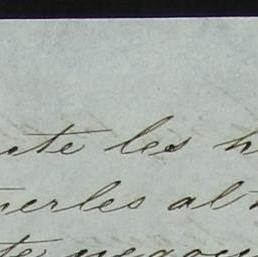 ate les h
nerles al
te negoci